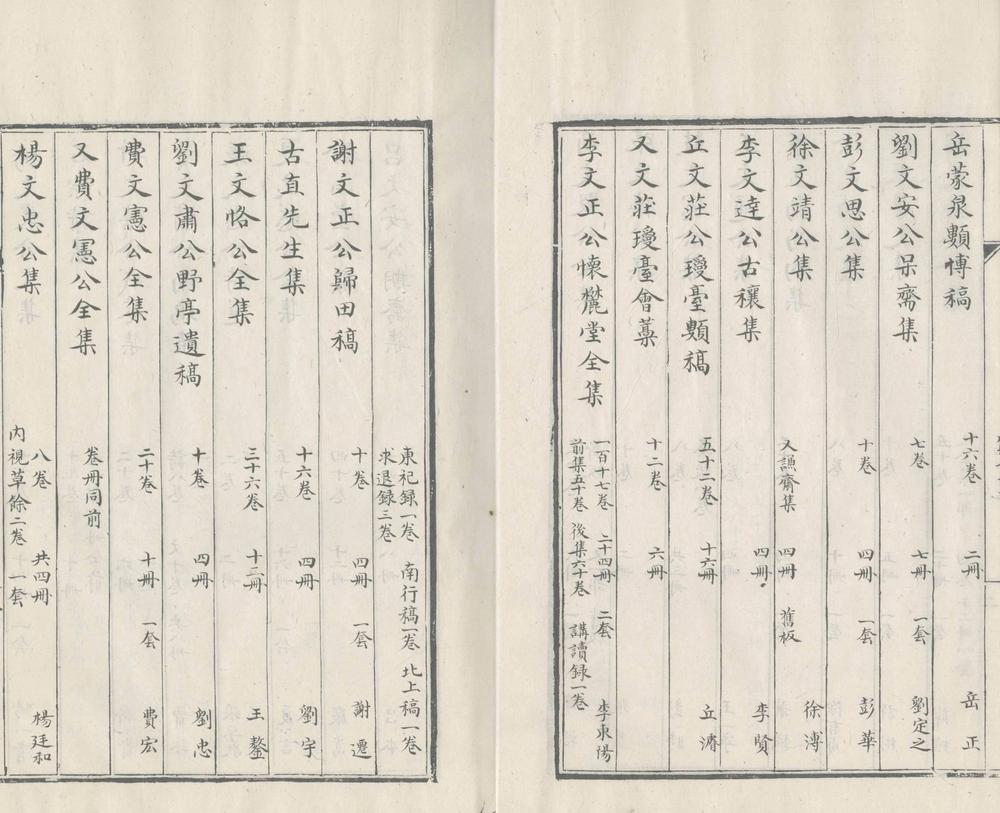 岳蒙泉類博稿 十六卷 二冊 岳正
劉文安公呆齋集 七卷 七冊 一套 劉定之
彭文思公集 十卷 四冊 一套 彭華
徐文靖公集 又謙齋集 四冊 舊板 徐溥
李文達公古穰集 四冊 李賢
丘文莊公瓊臺類稿 五十二卷 十六冊 丘濬
又文莊瓊臺會藁 十二卷 六冊
李文正公懷麓堂全集 一百十七卷 二十四冊 二套 李東陽
前集五十卷 後集六十卷 講讀録一卷
東祀録一卷 南行稿一卷 北上稿一卷
求退録三卷
謝文正公歸田稿 十卷 四冊 一套 謝遷
古直先生集 十六卷 四冊 劉宇
王文恪公全集 三十六卷 十三冊 王鏊
劉文肅公野亭遺稿 十卷 四冊 劉忠
費文憲公全集 二十卷 十冊 一套 費宏
又費文憲公全集 卷冊同前
楊文忠公集 八卷 共四冊 楊廷和
內視草餘二卷 一套